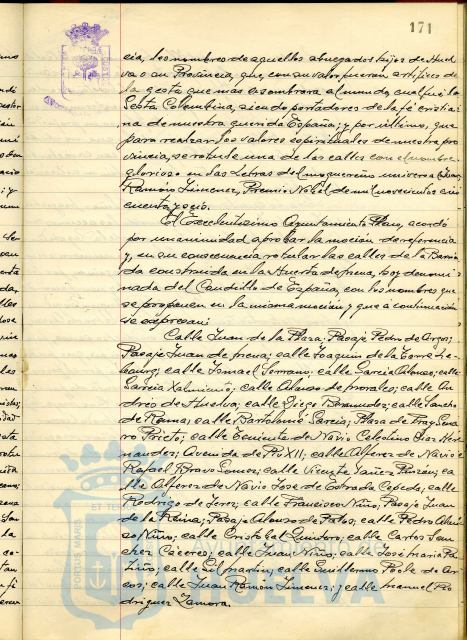 171
cia, los nombres de aquellos abnegados hijos de Huel-
va o su Provincia, que, con su valor fueron artífices de
la gesta que más asombrara al mundo, cual fué la
Gesta Colombina, siendo portadores de la fé cristia-
na de nuestra querida España; y por último, que
para realzar los valores espirituales de nuestra pro-
vincia, se rotule una de las calles con el nombre
glorioso en las Letras del moguereño universal Juan
Ramón Jimenez, Premio Nobel de mil novecientos cin-
cuenta y seis.
El Excelentísimo Ayuntamiento Pleno, acordó
por unanimidad aprobar la moción de referencia
y, en su consecuencia rotular las calles de la Barria-
da construida en la Huerta de Mena, hoy denomi-
nada del Caudillo de España, con los nombres que
se proponen en la misma moción y que a continuación
se expresan:
Calle Juan de la Plaza; Pasaje Pedro de Arcos;
Pasaje Juan de; calle Joaquin de la Torre
calle Ismael Serrano; calle García Alonso; calle
García; calle Alonso de Morales; calle An-
drés de Huelva; calle Diego Bermudez; calle Sancho
de Rama; calle Bartolomé García; Plaza de Fray Gena-
ro Prieto; calle Teniente de Navío Celestino Diaz Her-
nandez; Avenida de Pío XII; calle Alferez de Navío
Rafael Bravo; calle Vicente Yañez Pinzón; ca-
lle Alferez de Navío Jose de Estrada Cepeda; calle
Rodrigo de Jerez; calle Francisco Niño; Pasaje Juan
de la Reina; Pasaje Alonso de Palos; calle Pedro Alon-
so Niño; calle Cristobal Quintero; calle Carlos San-
chez Caceres; calle Juan Niño; calle José María Pa-
tiño; calle Gil Martin; calle Guillermo Poole de Ar-
cos; calle Juan Ramón Jimenez; y calle Manuel Ro-
driguez Zamora.
PORTUS MARIS
ET TE
HUELVA